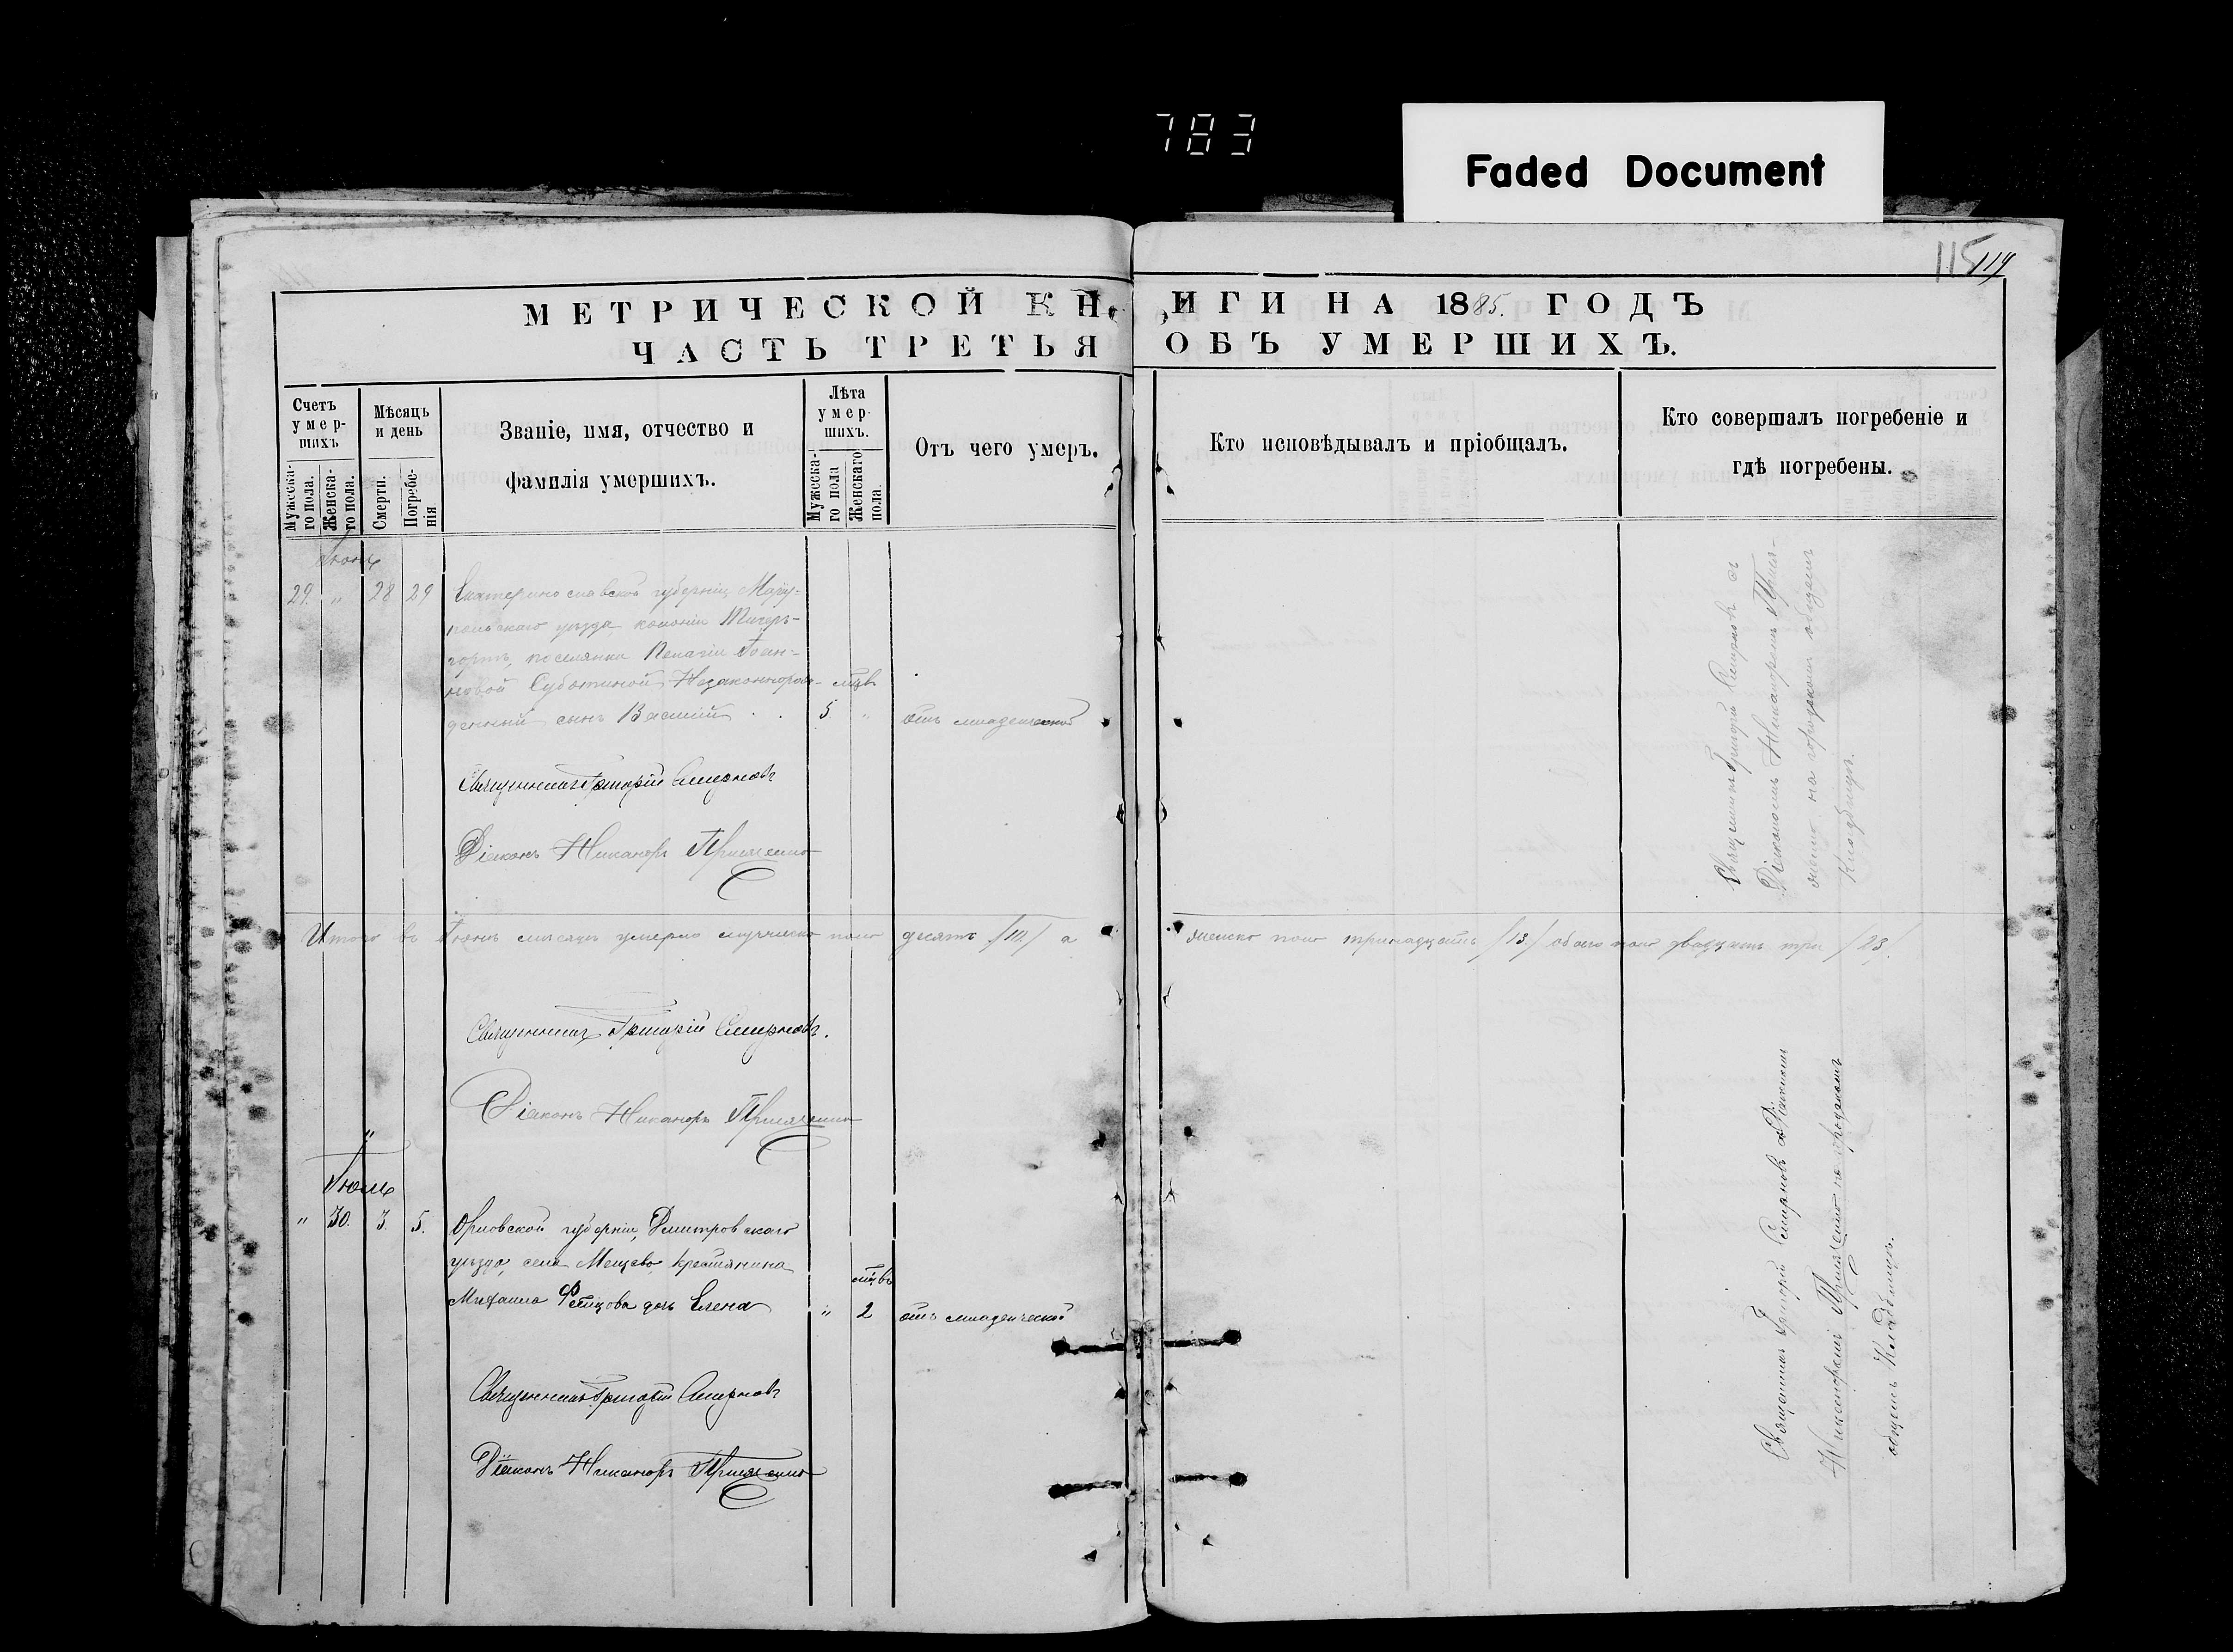 783
Faded Document
115 114
МЕТРИЧЕСКОЙ КНИГИ НА 1885. ГОДЪ
ЧАСТЬ ТРЕТЬЯ ОБЪ УМЕРШИХЪ.
Счетъ умер-шихъ
Мужеска-го пола.
Женска-го пола.
Мѣсяцъ и день
Смерти.
Погребе-нія
Званіе, имя, отчество и
фамилія умершихъ.
Лѣта умер-шихъ.
Мужеска-го пола
Женскаго пола.
Отъ чего умеръ.
Кто исповѣдывалъ и пріобщалъ.
Кто совершалъ погребеніе и
гдѣ погребены.
Іюнь
29. " 28 29 Екатеринославской губерніи Маріу-
польскаго уѣзда, колоніи
поселянки Пелагіи Іоан-
новой Субботиной Незаконнорож-
денный сынъ Василій
5 " отъ младенческой
Священникъ Григорій Смирновъ
Діаконъ Никаноръ
Священникъ Григорій Смирновъ съ
Діакономъ Никаноромъ
на городскомъ общемъ
Кладбищѣ.
Итого въ Іюнѣ мѣсяцѣ умерло мужеска пола десять /10/ а женска пола тринадцать /13/ обоего пола двадцать три /23/.
Священникъ Григорій Смирновъ.
Діаконъ Никаноръ
Іюль
" 30. 3. 5. Орловской губерніи, Дмитровскаго
уѣзда, села крестьянина
Михаила дочь Елена
" 2 отъ младенческой
Священникъ Григорій Смирновъ
Діаконъ Никаноръ
Священникъ Григорій Смирновъ съ Діакономъ
Никаноромъ на городскомъ
общемъ Кладбищѣ.